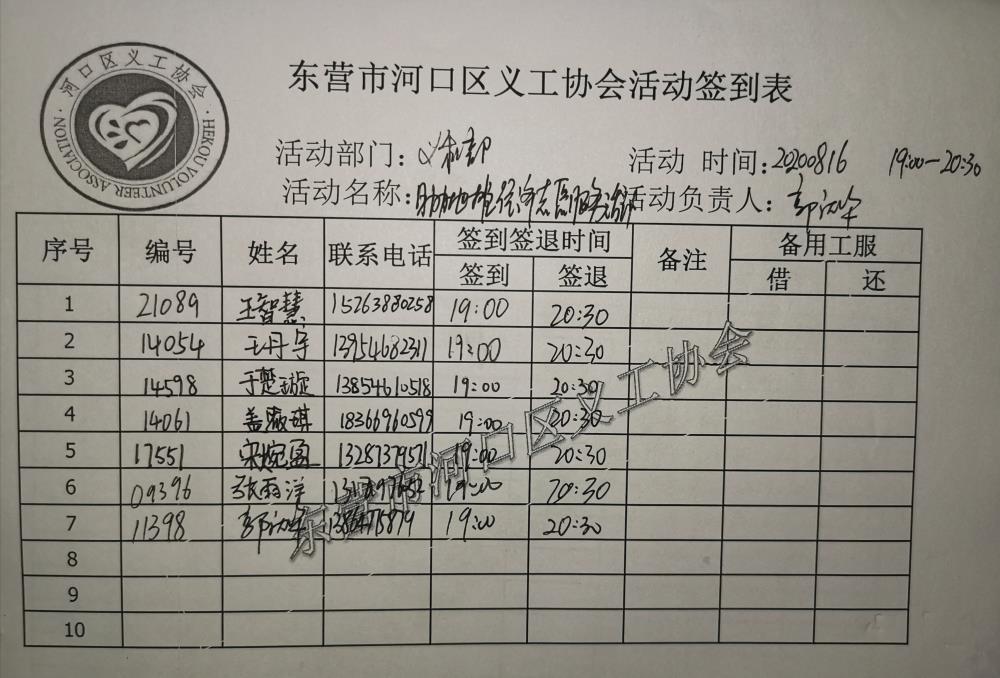 东营市河口区义工协会活动签到表
河口区义工协会
HEKOU VOLUNTEER ASSOCIATION
活动部门：
活动 时间：20200816 19:00-20:30
活动名称：
活动负责人：
序号 编号 姓名 联系电话 签到签退时间 备注 备用工服
签到 签退 借 还
1 21089 王智慧 15263880258 19:00 20:30
2 14054 王丹宇 13954682311 19:00 20:30
3 14598 于楚璇 13854610518 19:00 20:30
4 14061 盖 琪 18366960599 19:00 20:30
5 17551 宋婉盈 13287379571 19:00 20:30
6 09396 张雨洋 19:00 20:30
7 11398 19:00 20:30
8
9
10
东营市河口区义工协会